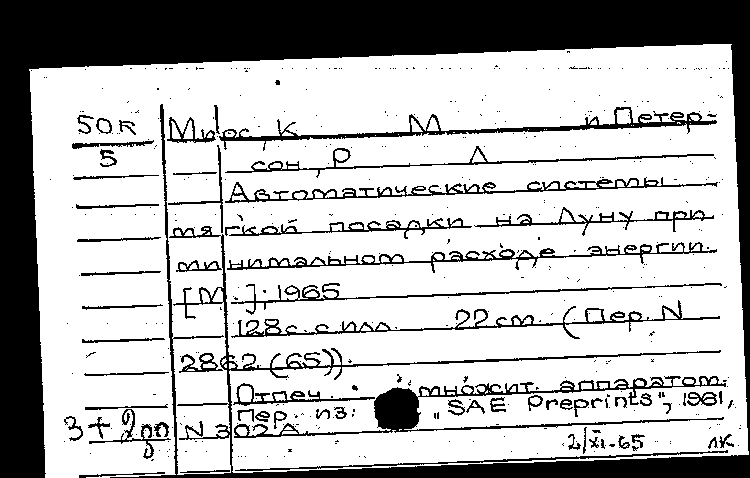 50R Мирс, К М и Петер-
5 сон, Р Л
Автоматические системы
мягкой посадки на Луну при
минимальном расходе энергии.
[М.]; 1965
128 с. с илл. 22 см. (Пер. N
2862 (65)).
Отпеч. множит. аппаратом.
Пер. из: "SAE Preprints", 1961,
3 + N 302 A.
2/XI-65 лк